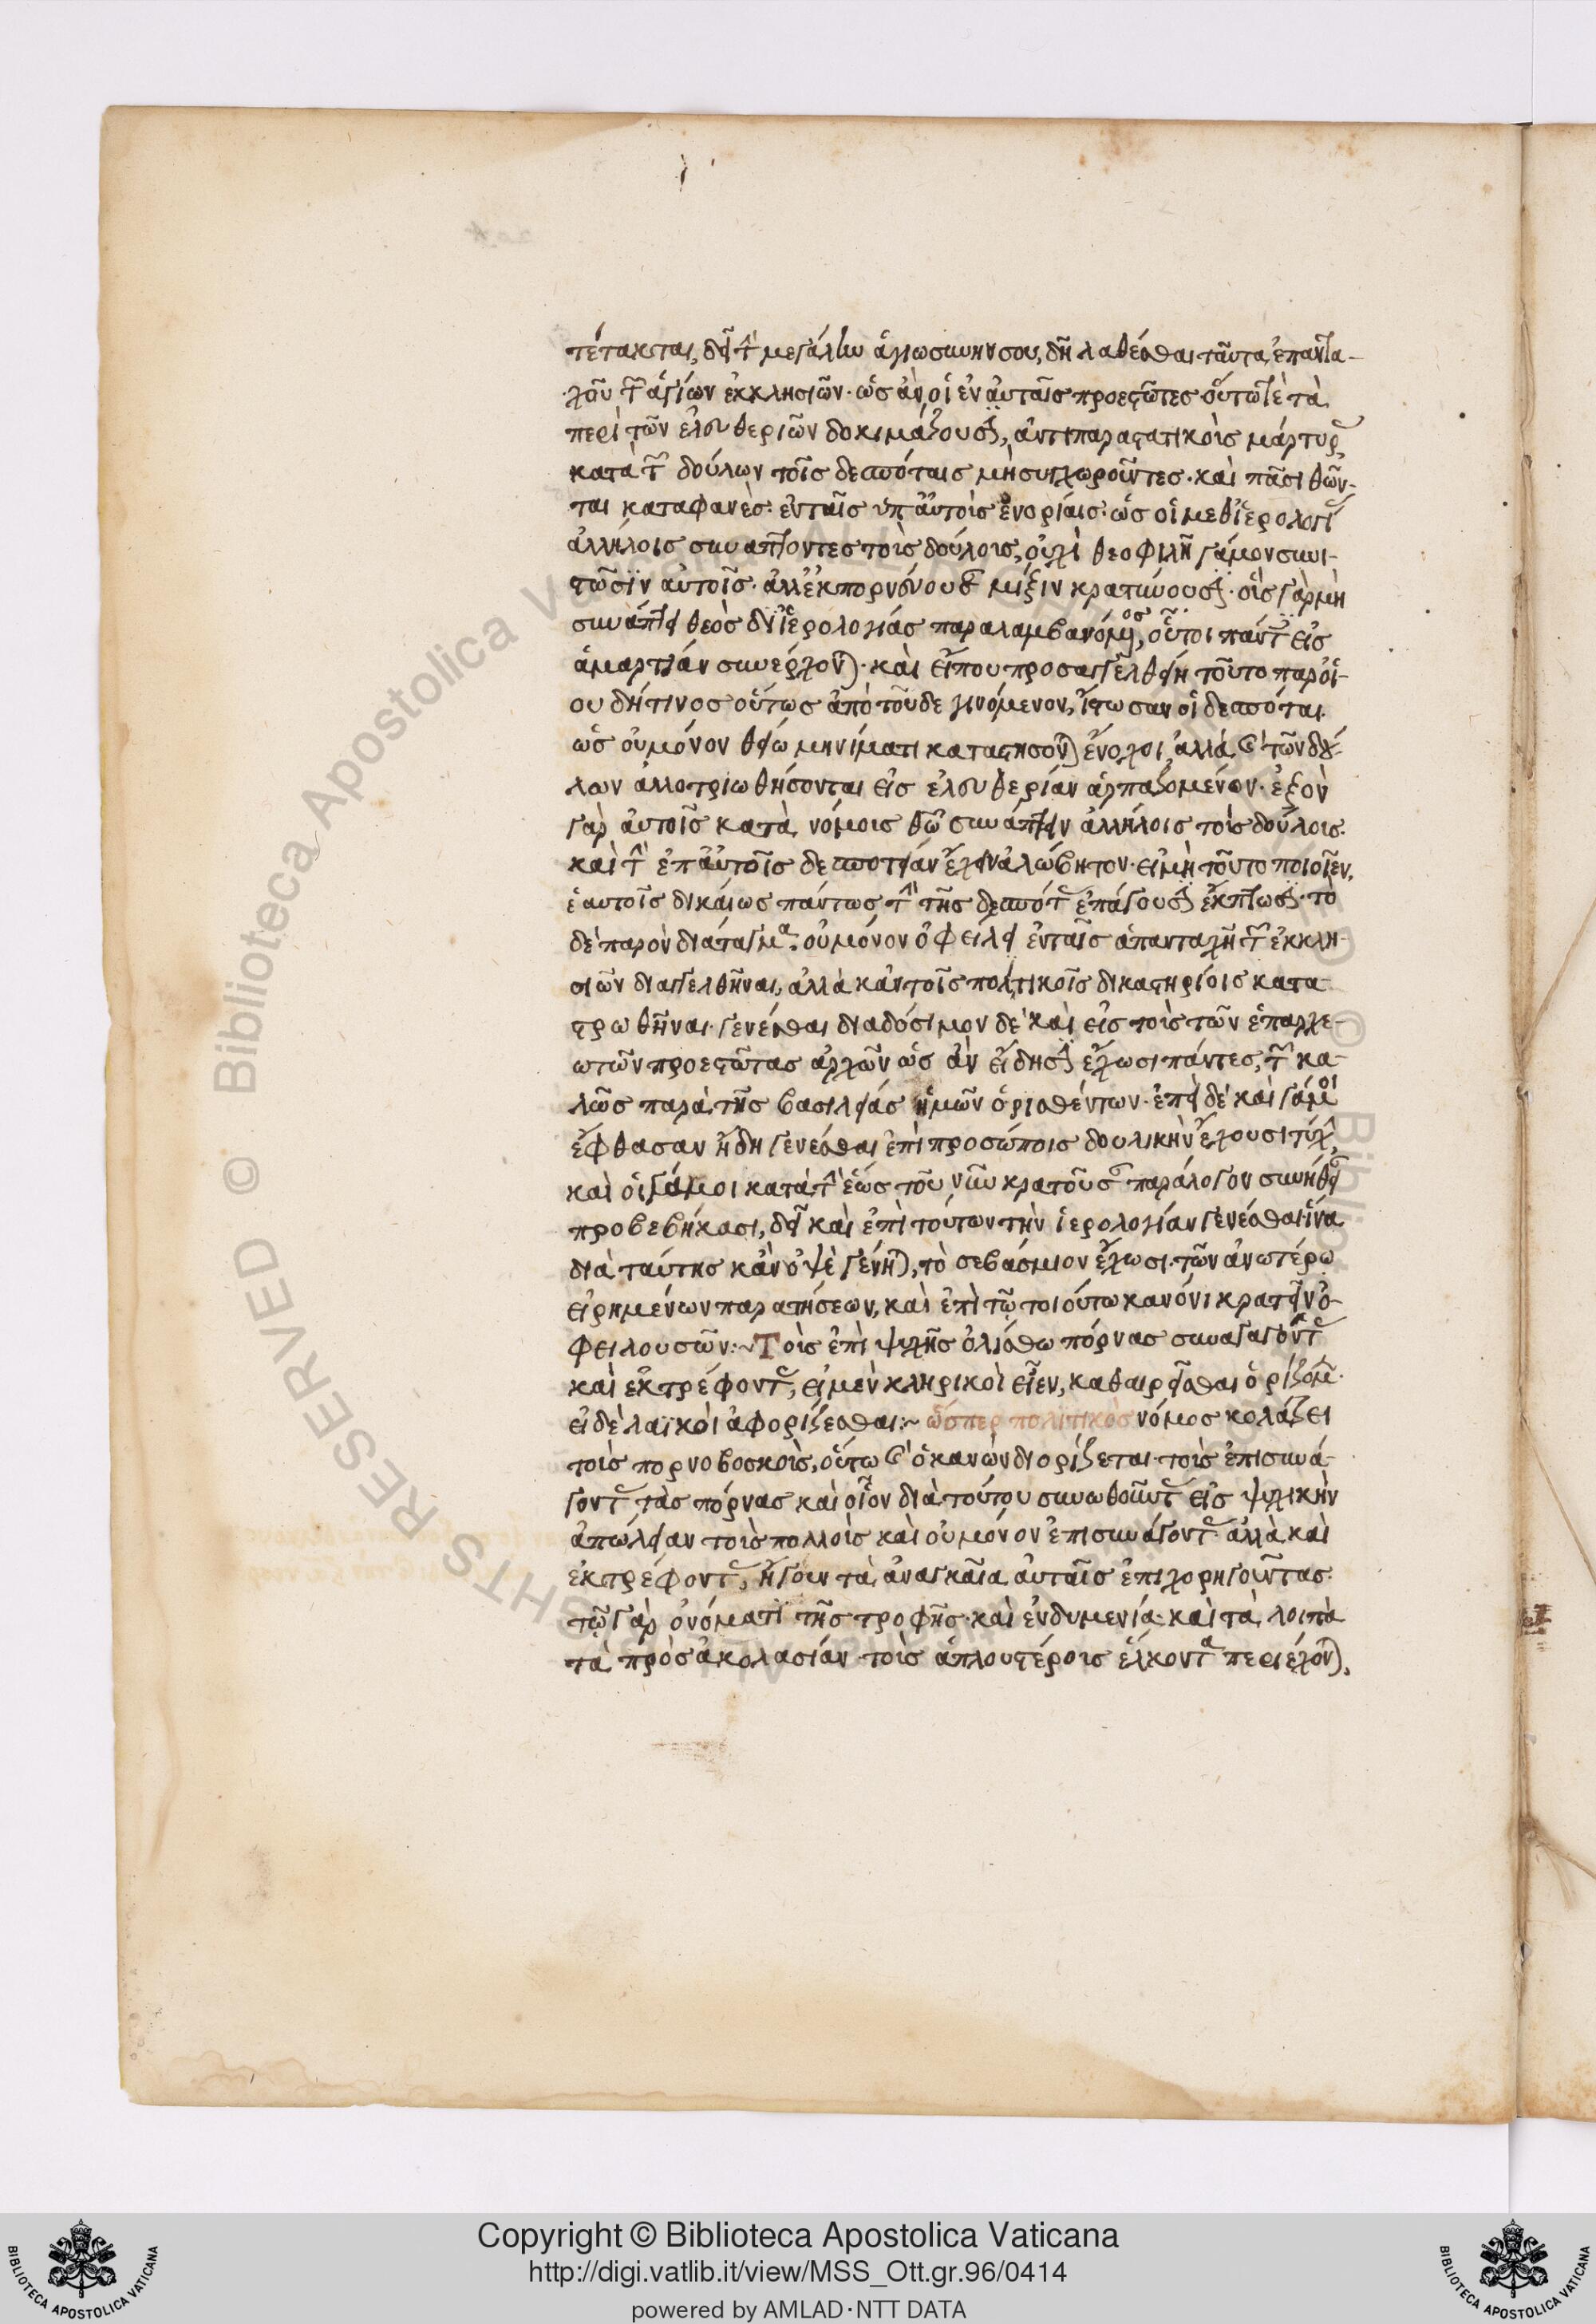 τέτακται, δεῖ τὴν μεγάλην ἁγιωσύνην σου, δηλαθέσθαι ταῦτα, ἐπαντα-
χοῦ τῶν ἁγίων ἐκκλησιῶν· ὡς ἂν οἱ ἐν αὐταῖς προεστῶτες οὕτω τε τὰ
περὶ τῶν ἐλευθεριῶν δοκιμάζουσιν, ἀντιπαραστατικοῖς μάρτυρσι
κατὰ τῶν δούλων τοῖς δεσπόταις μὴ συγχωροῦντες· καὶ πᾶσι θῶν-
ται καταφανὲς· ἐν ταῖς ὑπ αὐτοῖς ἐνορίαις· ὡς οἱ μεθ ἱερολογίας
ἀλλήλοις συνάπτοντες τοῖς δούλοις, οὐχὶ θεοφιλῆ γάμον συνι-
στῶσιν αὐτοῖς· ἀλλ ἐκπορνεύουσαν μίξιν κρατύνουσιν· οἷς γὰρ μὴ
συνάπτει θεὸς δι ἱερολογίας παραλαμβανόμενος, οὗτοι πάντες εἰς
ἁμαρτίαν συνέρχονται· καὶ εἴπου προσαγγελθείη τοῦτο παρ οἱ-
ου δήτινος οὕτως ἀπὸ τοῦδε γινόμενον, ἴστωσαν οἱ δεσπόται
ὡς οὐ μόνον θείω μηνίματι καταστήσονται ἔνοχοι, ἀλλὰ καὶ τῶν δού-
λων ἀλλοτριωθήσονται εἰς ἐλευθερίαν ἁρπαζομένων· ἐξὸν
γὰρ αὐτοῖς κατὰ νόμοις θεοῦ συνάπτειν ἀλλήλοις τοῖς δούλοις
καὶ τὴν ἐπ αὐτοῖς δεσποτείαν ἔχειν ἀλώβητον· εἰ μὴ τοῦτο ποιοῖεν,
ἑαυτοῖς δικαίως πάντως τὴν τῆς δεσπότειας ἐπάγουσιν ἔκπτωσιν· τὸ
δὲ παρὸν διάταγμα· οὐ μόνον ὀφείλει ἐν ταῖς ἁπανταχῆ τῶν ἐκκλη-
σιῶν διαγγελθῆναι, ἀλλὰ κἂν τοῖς πολιτικοῖς δικαστηρίοις κατα
στρωθῆναι· γενέσθαι διαδόσιμον δὲ καὶ εἰς τοῖς τῶν ἐπαρχε-
ωτῶν προεστῶτας ἀρχῶν ὡς ἂν εἴδησιν ἔχωσι πάντες, τῶν κα-
λῶς παρὰ τῆς βασιλείας ἡμῶν ὁρισθέντων· ἐπεὶ δὲ καὶ γάμοι
ἔφθασαν ἤδη γενέσθαι ἐπὶ προσώποις δουλικὴν ἔχουσι τύχην,
καὶ οἱ γάμοι κατὰ τὴν ἕως τοῦ νῦν κρατοῦσαν παράλογον συνήθειαν
προβεβήκασι, δεῖ καὶ ἐπὶ τούτων τὴν ἱερολογίαν γενέσθαι ἵνα
διὰ ταύτης κἂν ὀψὲ γένηται, τὸ σεβάσμιον ἔχωσι· τῶν ἀνωτέρω
εἰρημένων παρατήσεων, καὶ ἐπὶ τῷ τοιούτω κανόνι κρατεῖν ὀ-
φειλουσῶν:~ Τοῖς ἐπὶ ψυχῆς ὀλίσθω πόρνας συναγαγόντας
καὶ ἐκτρέφοντας, εἰ μὲν κληρικοὶ εἶεν, καθαιρεῖσθαι ὁρίζομεν·
εἰ δὲ λαϊκοὶ ἀφορίζεσθαι:~ ὥσπερ πολιτικὸς νόμος κολάζει
τοὶς πορνοβοσκοὶς, οὕτω καὶ ὁ κανὼν διορίζεται· τοὶς ἐπισυνά-
γοντας τὰς πόρνας καὶ οἷον διὰ τούτου συνωθοῦντας εἰς ψυχικὴν
ἀπώλειαν τοὶς πολλοὶς καὶ οὐ μόνον ἐπισυνάγοντας ἀλλὰ καὶ
ἐκτρέφοντας, ἤγουν τὰ ἀναγκαῖα αὐταῖς ἐπιχορηγοῦντας
τῷ γὰρ ὀνόματι τῆς τροφῆς· καὶ ἐνδυμενία· καὶ τὰ λοιπὰ
τὰ πρὸς ἀκολασίαν τοὶς ἁπλουστέροις ἕλκοντα περιέχονται,
Copyright © Biblioteca Apostolica Vaticana
http://digi.vatlib.it/view/MSS_Ott.gr.96/0414
powered by AMLAD·NTT DATA